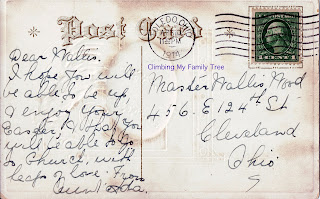 Post Card
TOLEDO, OHIO
1914
1 CENT 1
Climbing My Family Tree
Dear Wallis.
I hope you will
be able to be up
& enjoy your
Easter, & that you
will be able to go
to Church, with
leaps of love. From
Aunt Ada.
Master Wallis, Wood
456 - E 124th St
Cleveland
Ohio